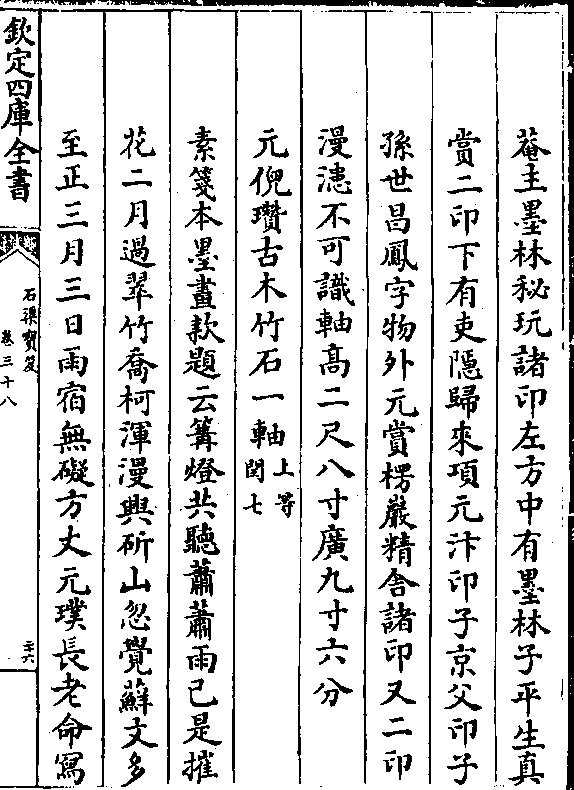 菴主墨林秘玩諸印左方中有墨林子平生真
賞二印下有吏隱歸來項元汴印子京父印子
孫世昌鳳字物外元賞楞嚴精舍諸印又二印
漫漶不可識軸髙二尺八寸廣九寸六分
元倪瓚古木竹石一軸上等閏七
素箋本墨畫款題云篝燈共聽蕭蕭雨已是摧
花二月過翠竹喬柯渾漫興斫山忽覺蘚文多
至正三月三日雨宿無礙方丈元璞長老命寫
欽定四庫全書
石渠寶笈
卷三十八
三十六